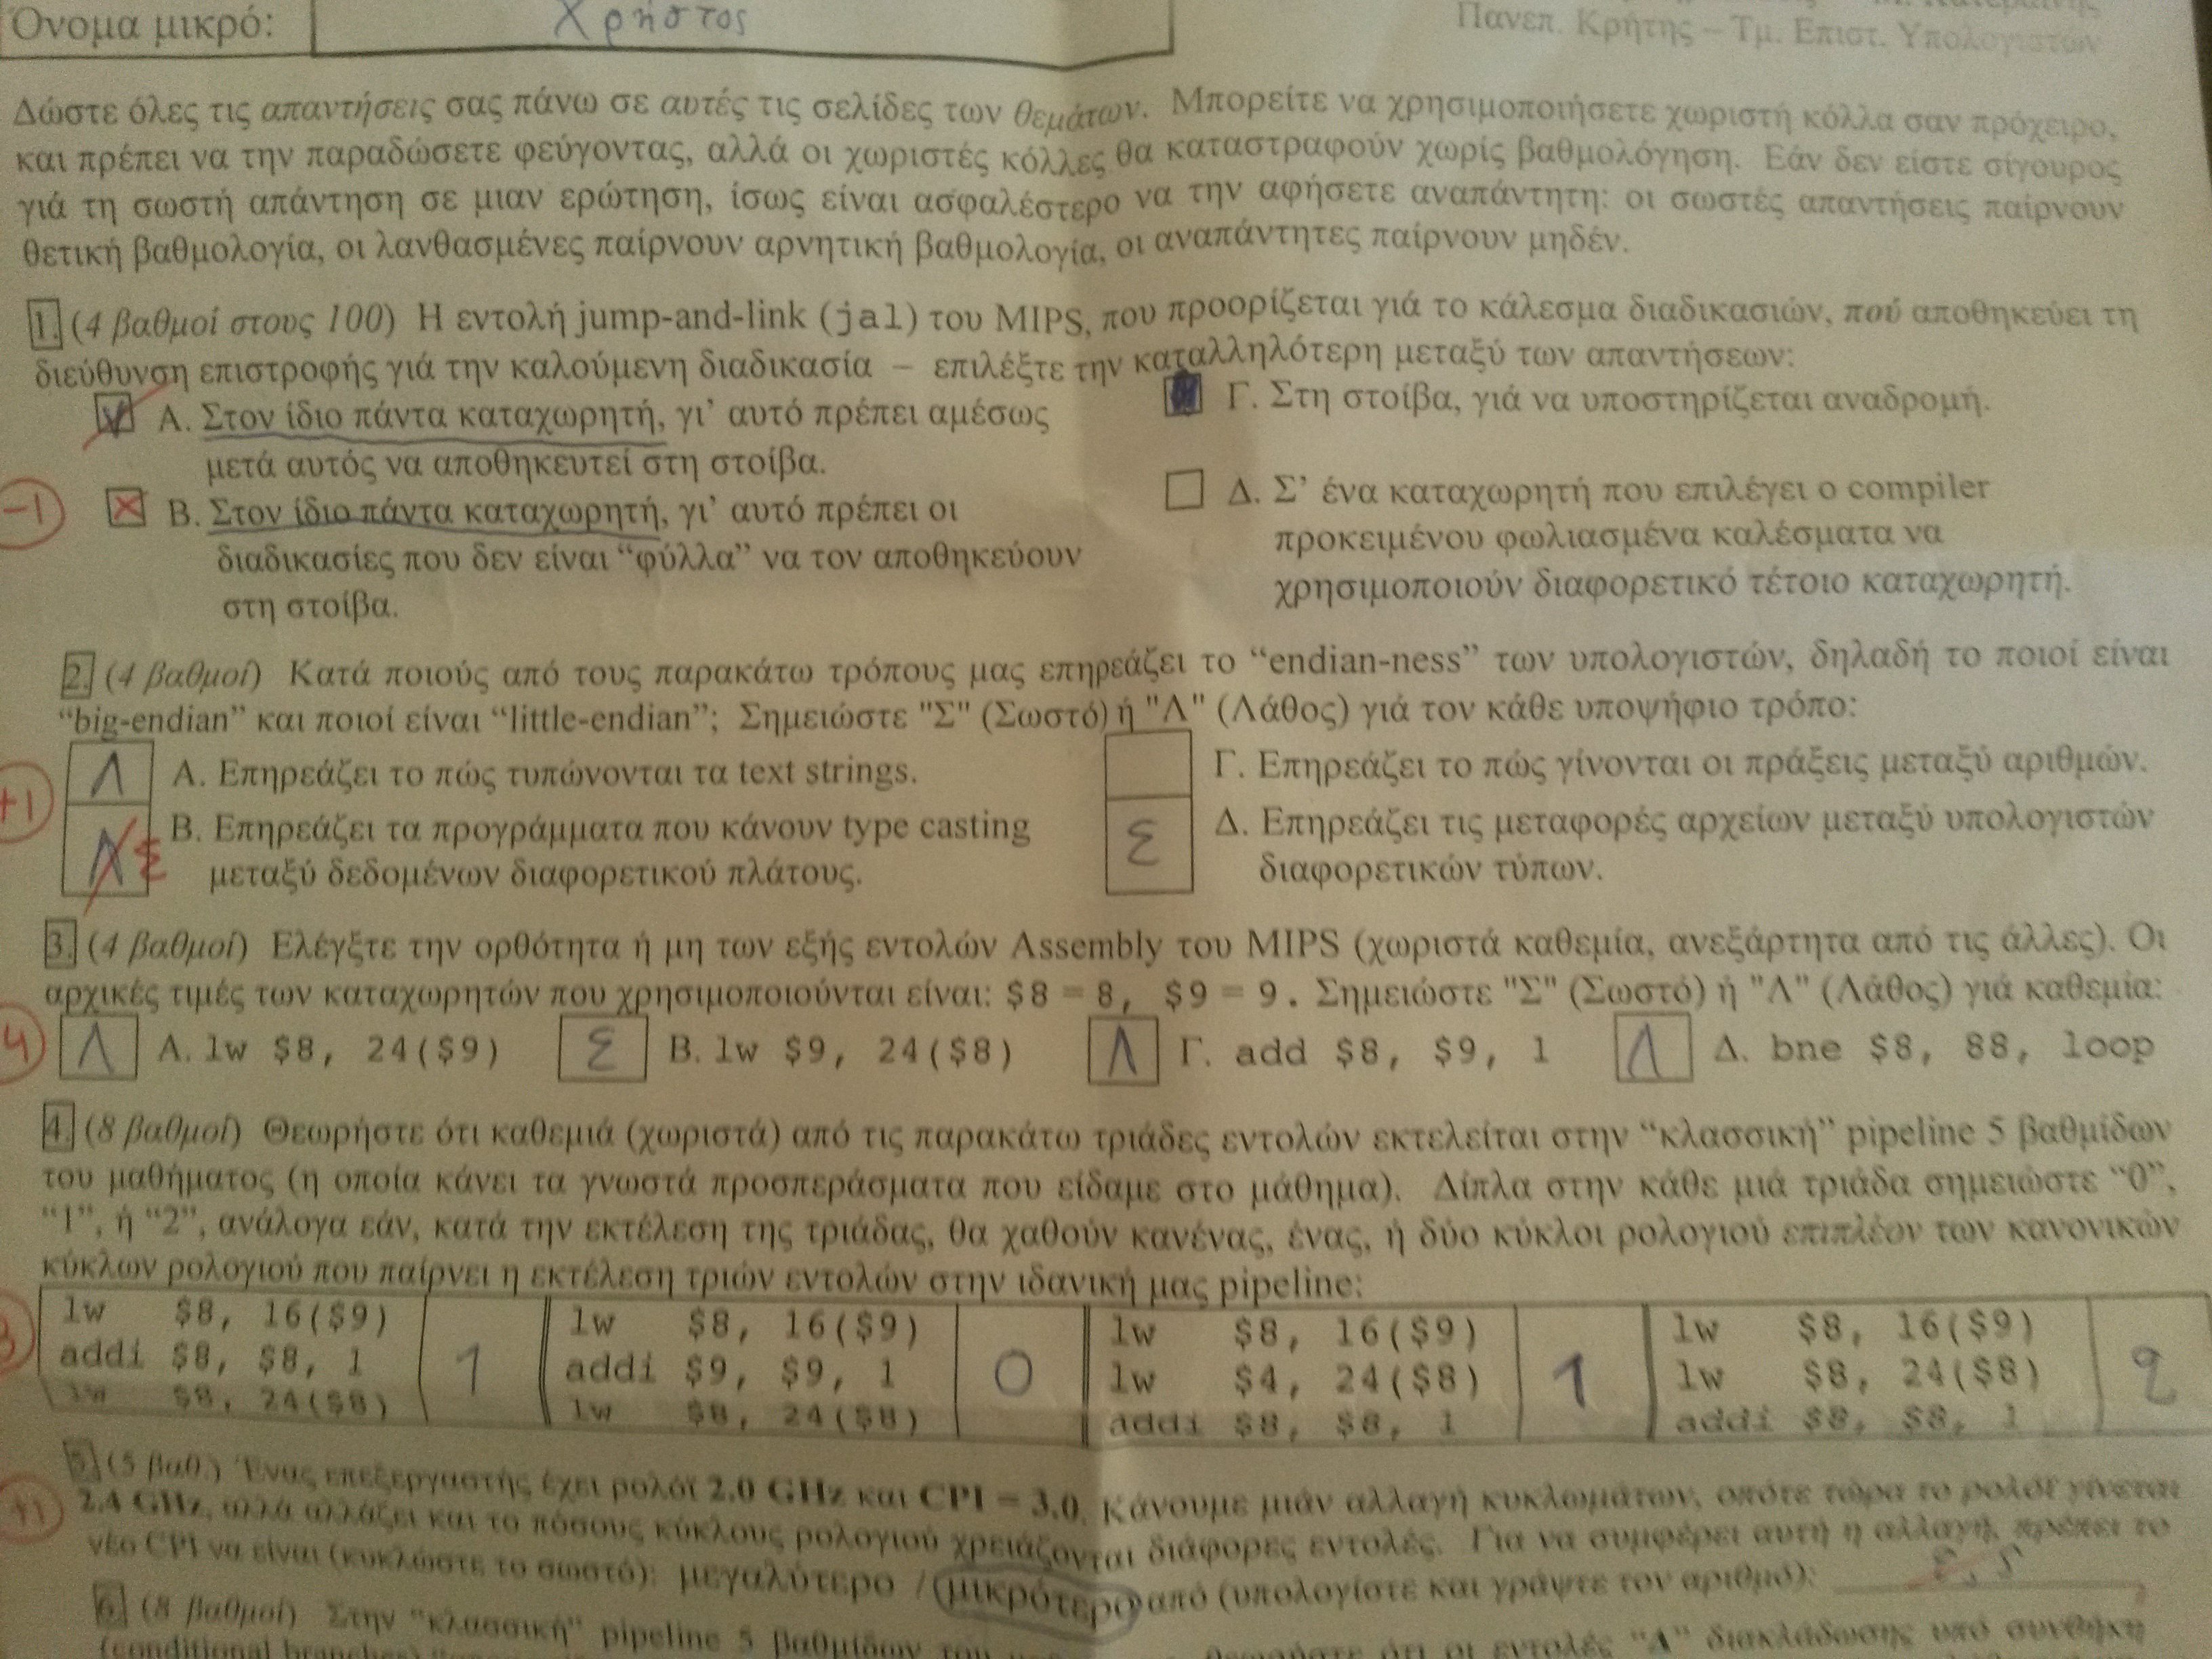 Όνομα μικρό: Χρήστος
Πανεπ. Κρήτης – Τμ. Επιστ. Υπολογιστών
Δώστε όλες τις απαντήσεις σας πάνω σε αυτές τις σελίδες των θεμάτων. Μπορείτε να χρησιμοποιήσετε χωριστή κόλλα σαν πρόχειρο,
και πρέπει να την παραδώσετε φεύγοντας, αλλά οι χωριστές κόλλες θα καταστραφούν χωρίς βαθμολόγηση. Εάν δεν είστε σίγουρος
γιά τη σωστή απάντηση σε μιαν ερώτηση, ίσως είναι ασφαλέστερο να την αφήσετε αναπάντητη: οι σωστές απαντήσεις παίρνουν
θετική βαθμολογία, οι λανθασμένες παίρνουν αρνητική βαθμολογία, οι αναπάντητες παίρνουν μηδέν.
1. (4 βαθμοί στους 100) Η εντολή jump-and-link (jal) του MIPS, που προορίζεται γιά το κάλεσμα διαδικασιών, πού αποθηκεύει τη
διεύθυνση επιστροφής γιά την καλούμενη διαδικασία – επιλέξτε την καταλληλότερη μεταξύ των απαντήσεων:
Α. Στον ίδιο πάντα καταχωρητή, γι' αυτό πρέπει αμέσως
μετά αυτός να αποθηκευτεί στη στοίβα.
-1
Β. Στον ίδιο πάντα καταχωρητή, γι' αυτό πρέπει οι
διαδικασίες που δεν είναι “φύλλα” να τον αποθηκεύουν
στη στοίβα.
Γ. Στη στοίβα, γιά να υποστηρίζεται αναδρομή.
Δ. Σ' ένα καταχωρητή που επιλέγει ο compiler
προκειμένου φωλιασμένα καλέσματα να
χρησιμοποιούν διαφορετικό τέτοιο καταχωρητή.
2. (4 βαθμοί) Κατά ποιούς από τους παρακάτω τρόπους μας επηρεάζει το “endian-ness” των υπολογιστών, δηλαδή το ποιοί είναι
“big-endian” και ποιοί είναι “little-endian”; Σημειώστε "Σ" (Σωστό) ή "Λ" (Λάθος) γιά τον κάθε υποψήφιο τρόπο:
+1
Λ Α. Επηρεάζει το πώς τυπώνονται τα text strings.
Λ Σ Β. Επηρεάζει τα προγράμματα που κάνουν type casting
μεταξύ δεδομένων διαφορετικού πλάτους.
Γ. Επηρεάζει το πώς γίνονται οι πράξεις μεταξύ αριθμών.
Σ Δ. Επηρεάζει τις μεταφορές αρχείων μεταξύ υπολογιστών
διαφορετικών τύπων.
3. (4 βαθμοί) Ελέγξτε την ορθότητα ή μη των εξής εντολών Assembly του MIPS (χωριστά καθεμία, ανεξάρτητα από τις άλλες). Οι
αρχικές τιμές των καταχωρητών που χρησιμοποιούνται είναι: $8 = 8, $9 = 9. Σημειώστε "Σ" (Σωστό) ή "Λ" (Λάθος) γιά καθεμία:
4 Λ Α. lw $8, 24($9) Σ Β. lw $9, 24($8) Λ Γ. add $8, $9, 1 Λ Δ. bne $8, 88, loop
4. (8 βαθμοί) Θεωρήστε ότι καθεμιά (χωριστά) από τις παρακάτω τριάδες εντολών εκτελείται στην “κλασσική” pipeline 5 βαθμίδων
του μαθήματος (η οποία κάνει τα γνωστά προσπεράσματα που είδαμε στο μάθημα). Δίπλα στην κάθε μιά τριάδα σημειώστε “0”,
“1”, ή “2”, ανάλογα εάν, κατά την εκτέλεση της τριάδας, θα χαθούν κανένας, ένας, ή δύο κύκλοι ρολογιού επιπλέον των κανονικών
κύκλων ρολογιού που παίρνει η εκτέλεση τριών εντολών στην ιδανική μας pipeline:
lw $8, 16($9)
addi $8, $8, 1
lw $8, 24($8)
1
lw $8, 16($9)
addi $9, $9, 1
lw $8, 24($8)
0
lw $8, 16($9)
lw $4, 24($8)
addi $8, $8, 1
1
lw $8, 16($9)
lw $8, 24($8)
addi $8, $8, 1
2
5. (5 βαθ.) Ένας επεξεργαστής έχει ρολόϊ 2.0 GHz και CPI = 3.0. Κάνουμε μιάν αλλαγή κυκλωμάτων, οπότε τώρα το ρολόϊ γίνεται
+1
2.4 GHz, αλλά αλλάζει και το πόσους κύκλους ρολογιού χρειάζονται διάφορες εντολές. Για να συμφέρει αυτή η αλλαγή, πρέπει το
νέο CPI να είναι (κυκλώστε το σωστό): μεγαλύτερο / μικρότερο από (υπολογίστε και γράψτε τον αριθμό):
6. (8 βαθμοί) Στην “κλασσική” pipeline 5 βαθμίδων του θεωρήστε ότι οι εντολές διακλάδωσης υπό συνθήκη
(conditional branches)